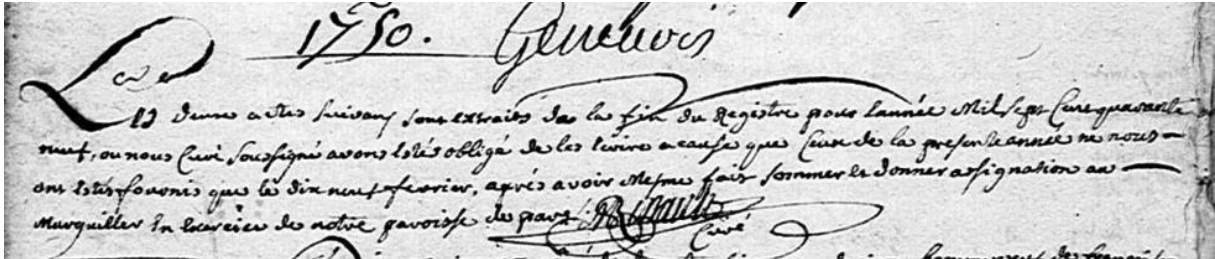 1750. Genenois
Les deux actes suivans sont extraits de la fin du Registre pour lannée Mil sept Cent quarante
neuf, ou nous Curé soussigné avons estés obligé de les écrire acause que Ceux de la presente année ne nous
ont estés fournis que le dix neuf fevrier, aprés avoir Mesme fait sommer et donner assignation au
Marguiller En Exercice de notre paroisse de
Curé